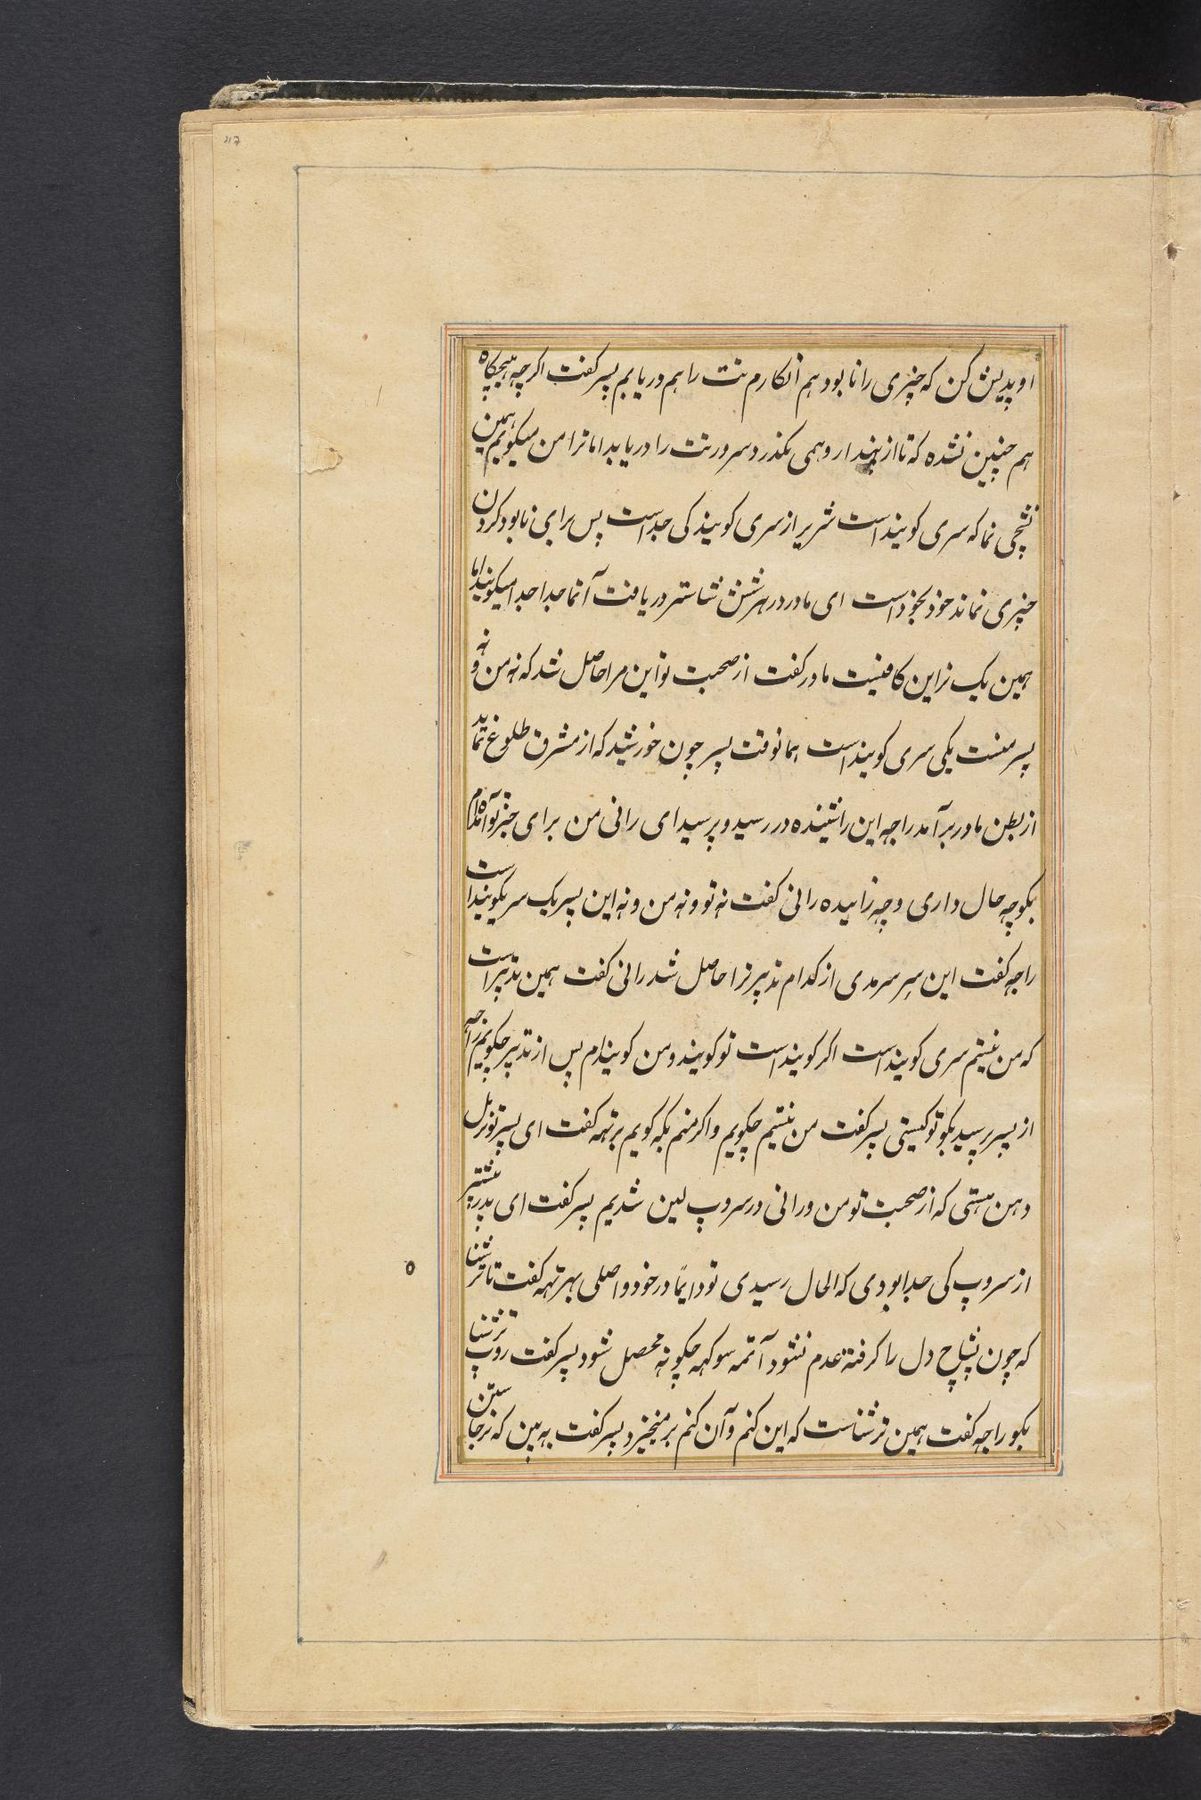 اوپدیش کن که چیزی را نابود هم انکارم تت را هم دریابم پسر گفت اگرچه هیچگاه
هم چنین نشده که تا از پندار وهمی نگذرد سرورتت را دریابد اما ترا من میگویم همین
نشچی نما که سری گویند است شریر از سری گویند کی جداست پس برای نابود کردن
چیزی نماند خود بخود است ای مادر در هر شش شاستر دریافت آتما جدا جدا میگویند اما
همین یک نزاین کافیست مادر گفت از صحبت تو این مرا حاصل شد که نه من و نه
پسر منست یکی سری گویند است همانوقت پسر چون خورشید که از مشرق طلوع نماید
از بطن مادر برآمد راجه این را شنیده در رسید و پرسید ای رانی من برای خبر تو آمده ام
بگو چه حال داری و چه زاییده رانی گفت نه تو و نه من و نه این پسر یک سریگویند است
راجه گفت این سرِ سرمدی از کدام تدبیر ترا حاصل شد رانی گفت همین تدبیر است
که من نیستم سری گویند است اگر گویند است تو گویند و من گویندام پس از تدبیر چگویم راجه
از پسر پرسید بگو تو کیستی پسر گفت من نیستم چگویم و اگر منم بکه گویم برتهه گفت ای پسر تو نرمل
دهن هستی که از صحبت تو من و رانی در سروپ لین شدیم پسر گفت ای پدر پیشتر
از سروپ کی جدا بودی که الحال رسیدی تو دایمًا در خود واصلی بهرتهه گفت تا ترشنا
که چون پشاچ دل را گرفته عدم نشود آتمه سوکهه چگونه محصل شود پسر گفت ترشنا روپ
بگو راجه گفت همین ترشناست که این کنم و آن کنم برمنخیزد پسر گفت به بین که نرجا سپن